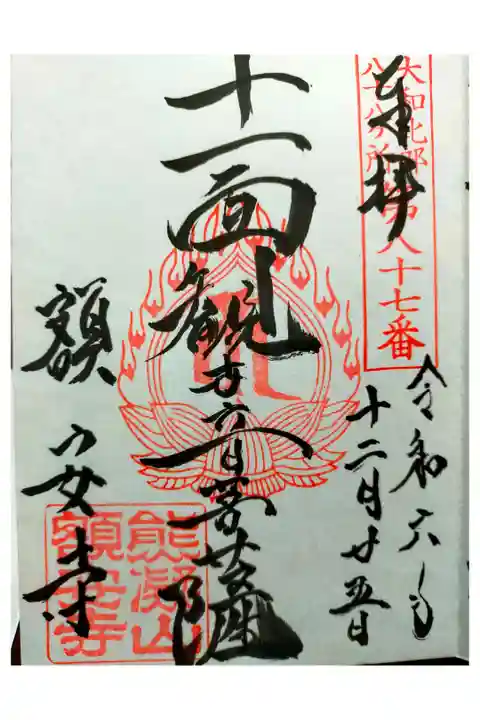 奉拝
大和北部
八十八ヶ所
第八十七番
令和六年
十二月廿五日
十一面観世音菩薩
額安寺
熊凝山
額安寺